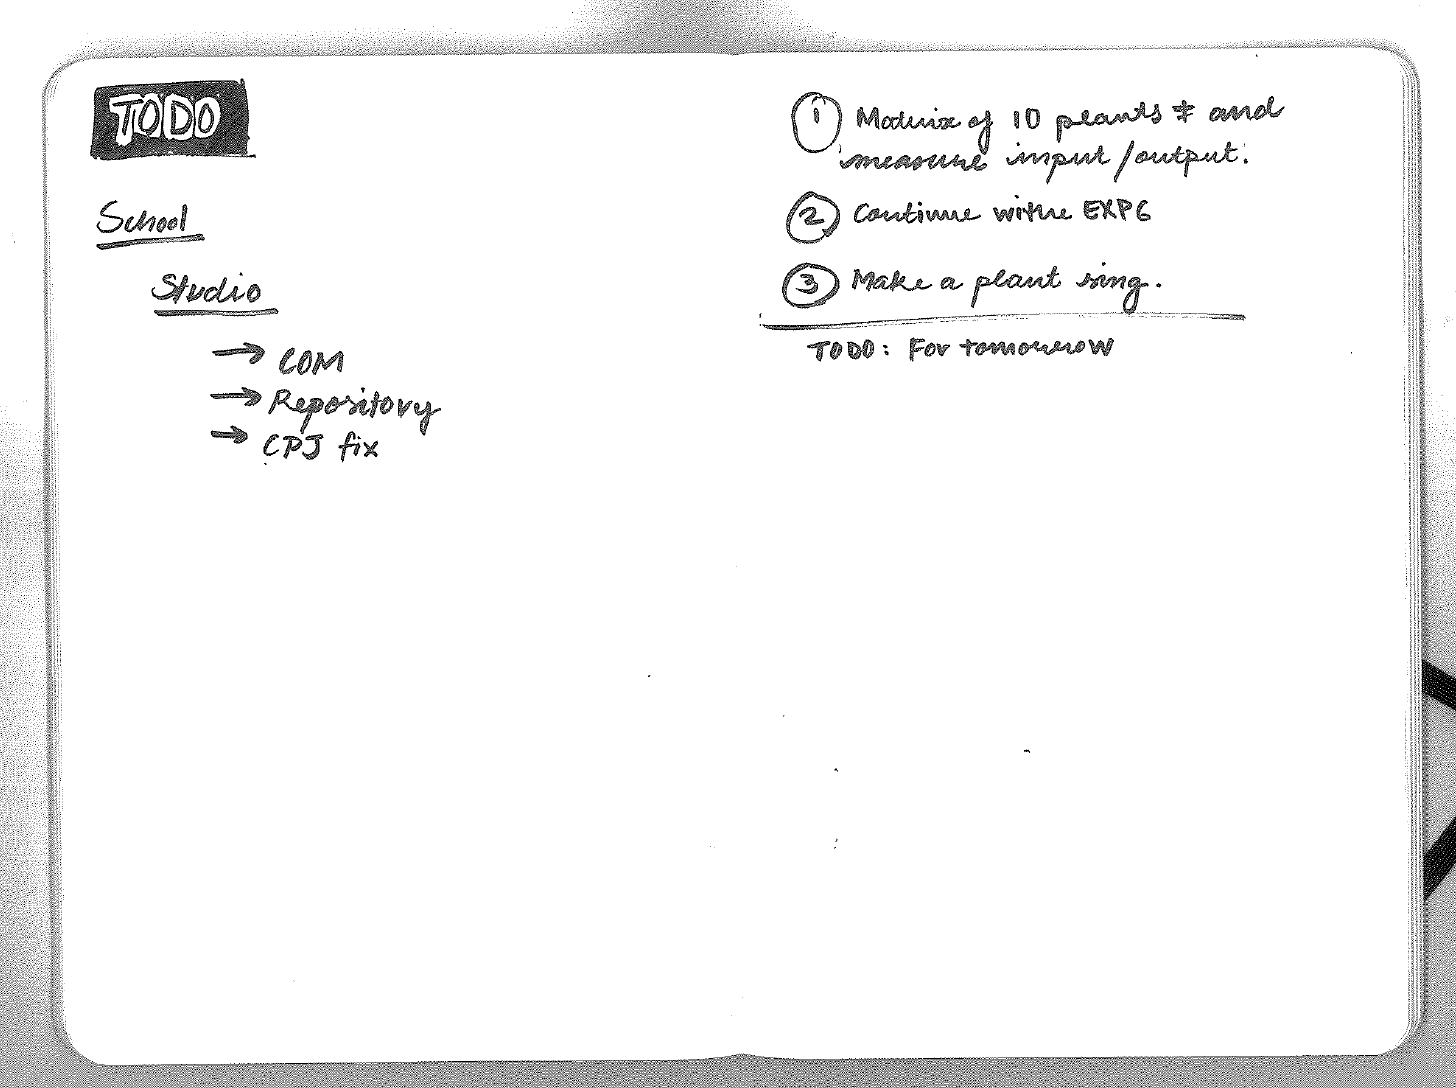 TODO
School
Studio
→ COM
→ Repository
→ CPJ fix
① Matrix of 10 plants and
measure input/output.
② Continue withe EXP6
③ Make a plant sing.
TODO: For tomorrow